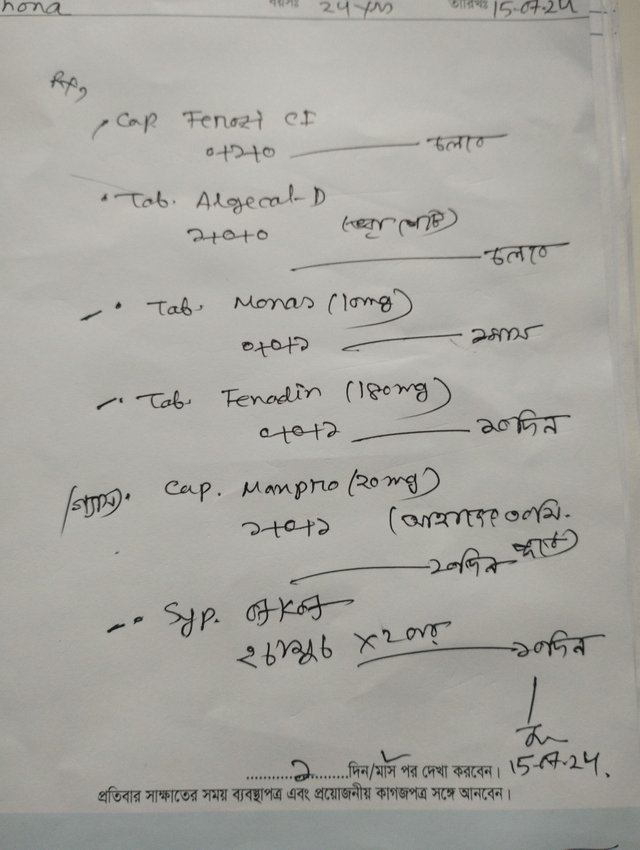 hona বয়সঃ 24 yrs তারিখঃ 15-07-24
Rx,
Cap Fenozi CI
০+১+০ চলবে
Tab. Algecal-D
১+০+০
চলবে
Tab. Monas (10mg)
০+০+১ ১মাস
Tab. Fenadin (180mg)
০+০+১ ২০দিন
Cap. Manpro (20mg)
১+০+১ (আহারের ৩০মি.
২০দিন আগে)
Syp.
১০দিন
15-07-24.
দিন/মাস পর দেখা করবেন।
প্রতিবার সাক্ষাতের সময় ব্যবস্থাপত্র এবং প্রয়োজনীয় কাগজপত্র সঙ্গে আনবেন।